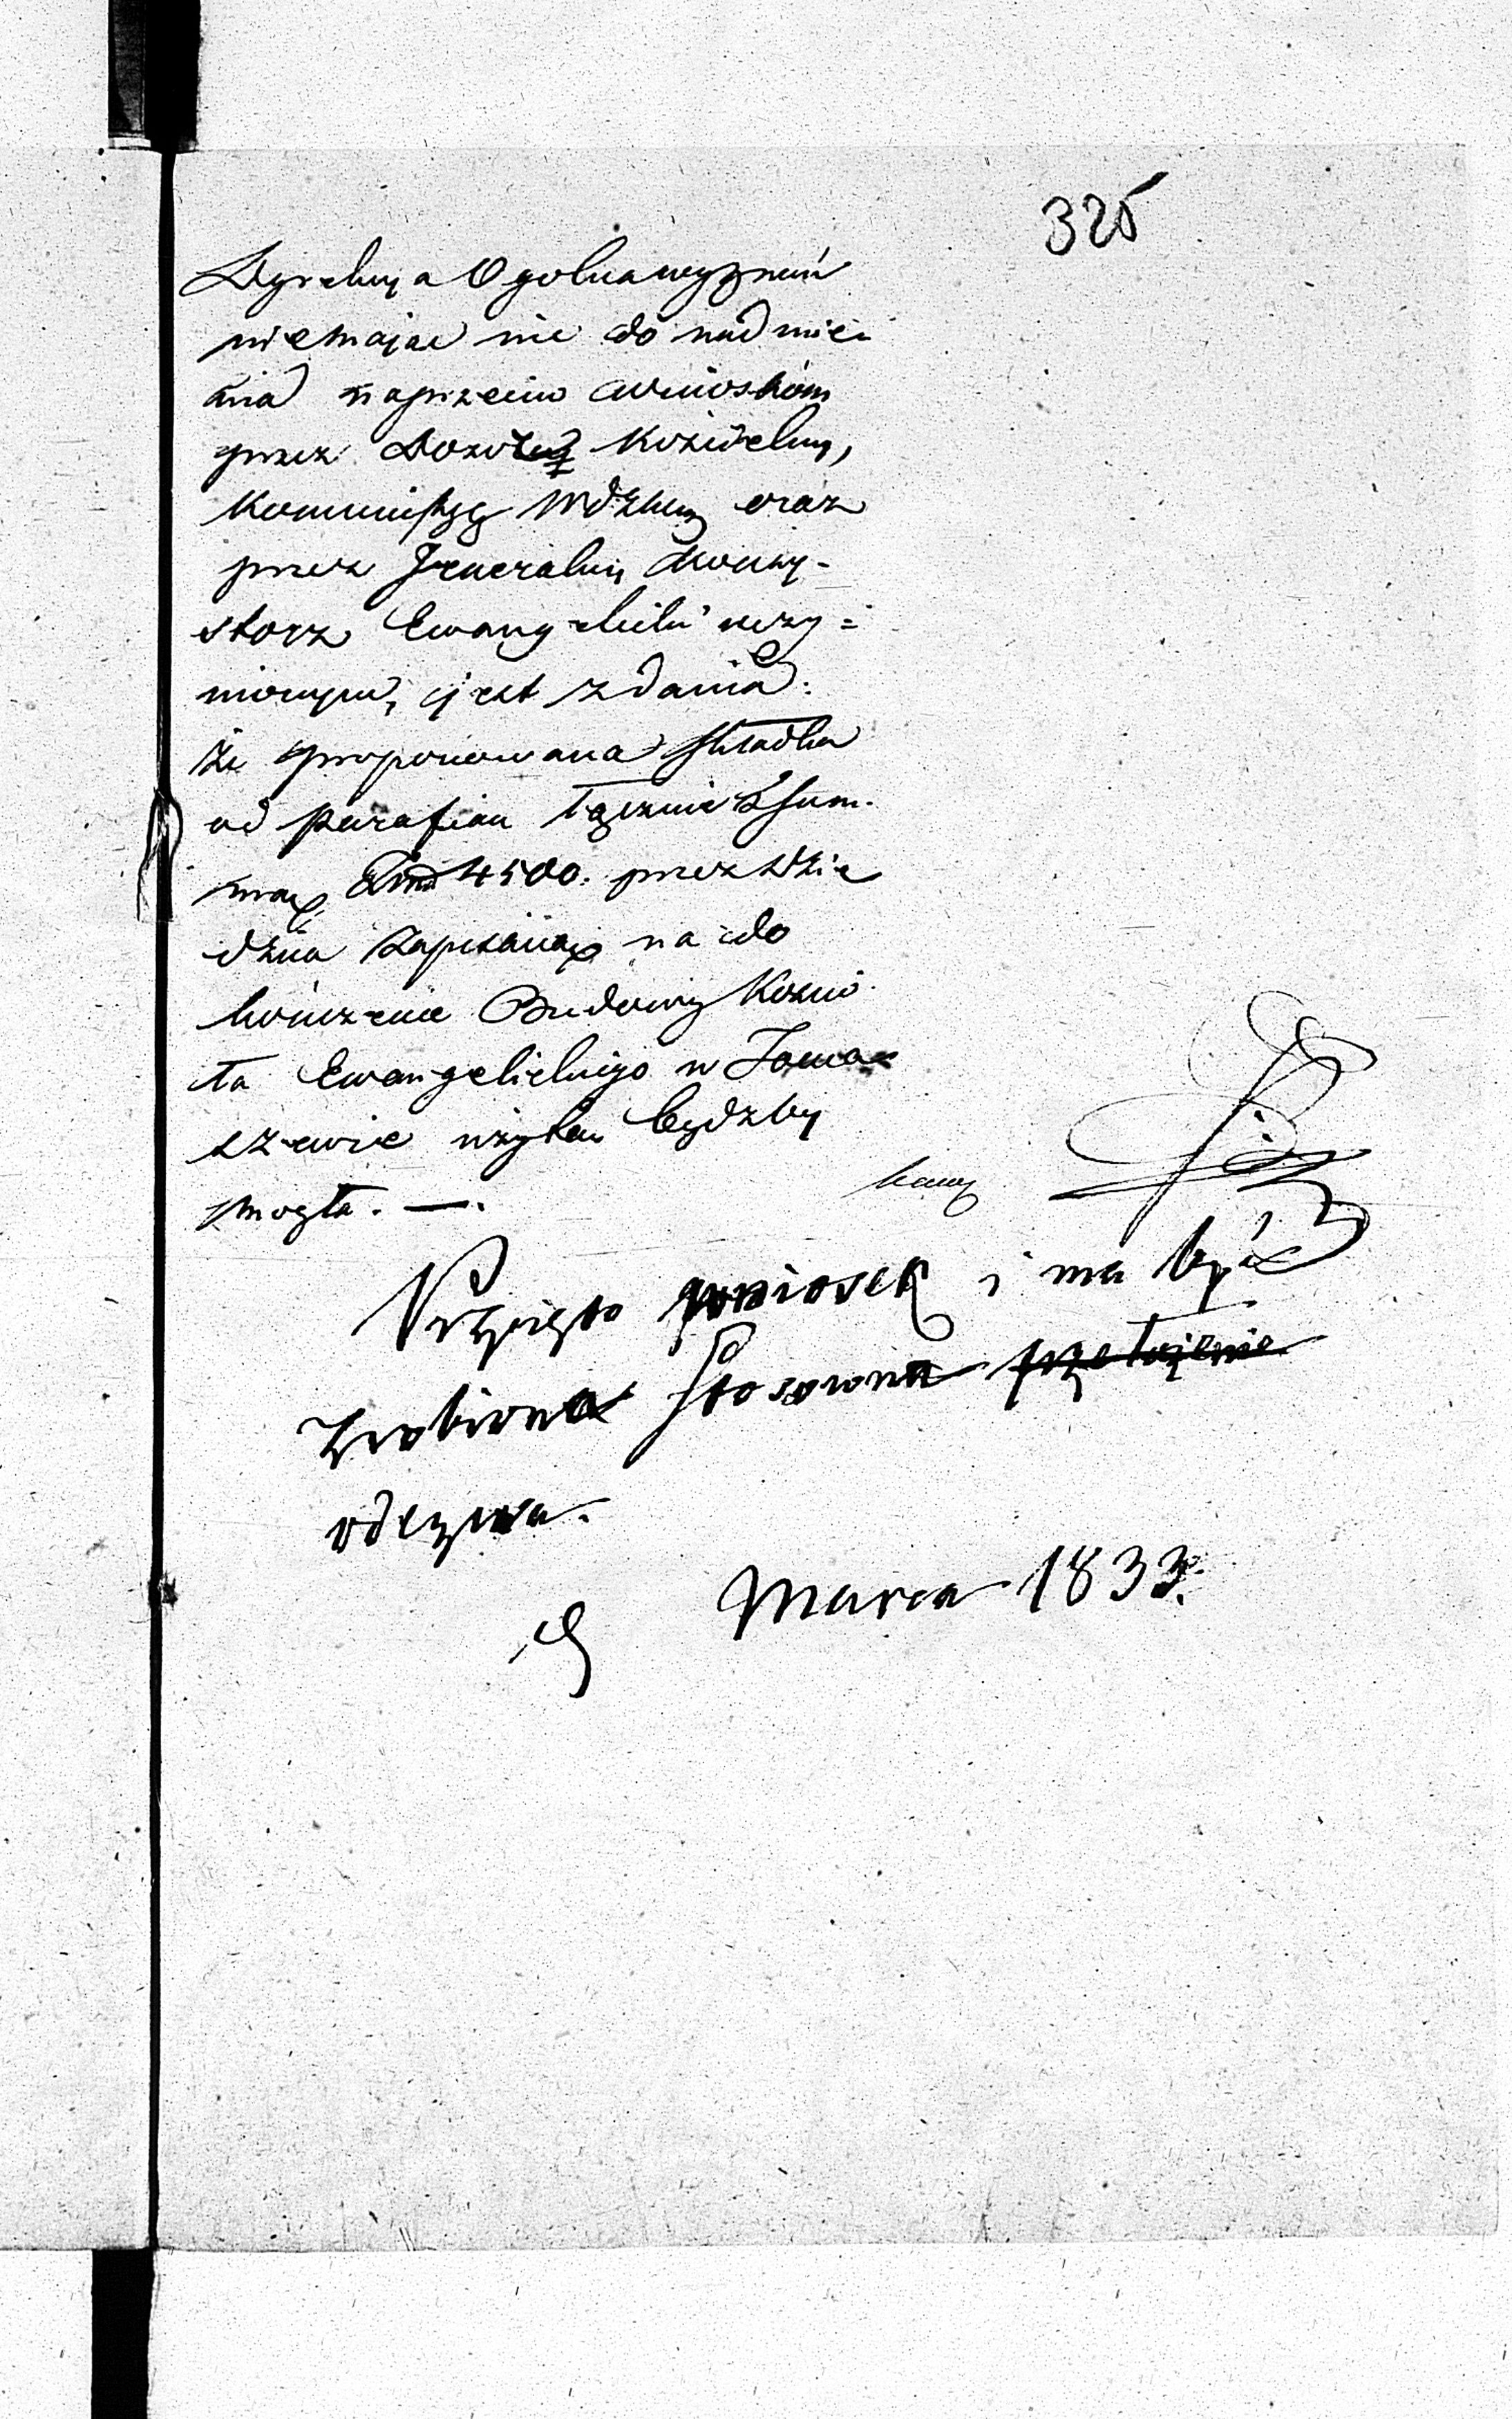 325
Dyrekcya Ogolna wyznań
niemając nic do nadmien
nia naprzeciw wnioskom
przez Dozór Kościelny,
Kommissyę Wdzką oraz
przez Jeneralny Konsy-
storz Ewangelicki uczy=
nionym, jest zdania:
że proponowana składka
od Parafian łącznie z sum-
mą 4500. przez Dzie
dzica zapisaną na do
kończenie Budowy Kościo
ła Ewangelickiego w Toma
szewie użytą bydźby
mogła. —.
Przyięto wniosek i ma być
zrobiona stosowna przełożenie
odezwa.
Marca 1833.